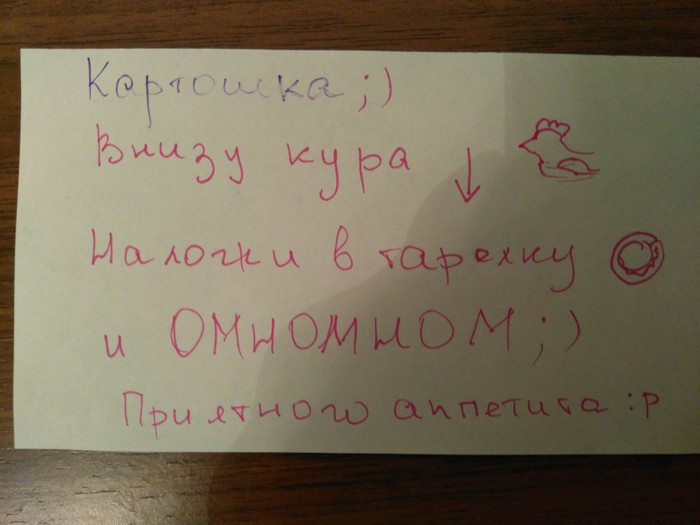 Картошка ;)
Внизу кура ↓
Наложи в тарелку
и ОМНОМНОМ ;)
Приятного аппетита :р